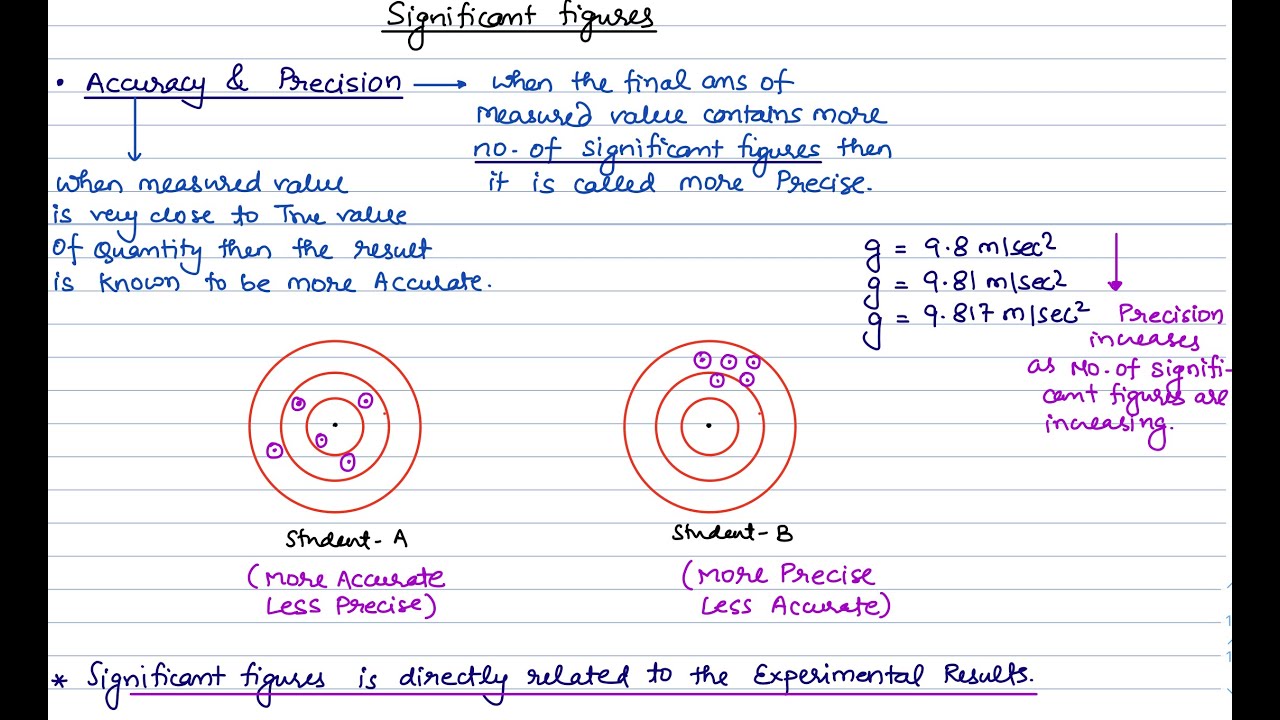 Significant figures
• Accuracy & Precision → when the final ans of
measured value contains more
no. of significant figures then
it is called more Precise.
when measured value
is very close to True value
of Quantity then the result
is known to be more Accurate.
g = 9.8 m/sec²
g = 9.81 m/sec²
g = 9.817 m/sec²
Precision
increases
as No. of signifi-
cant figures are
increasing.
Student - A
(More Accurate
Less Precise)
Student - B
(More Precise
Less Accurate)
* Significant figures is directly related to the Experimental Results.